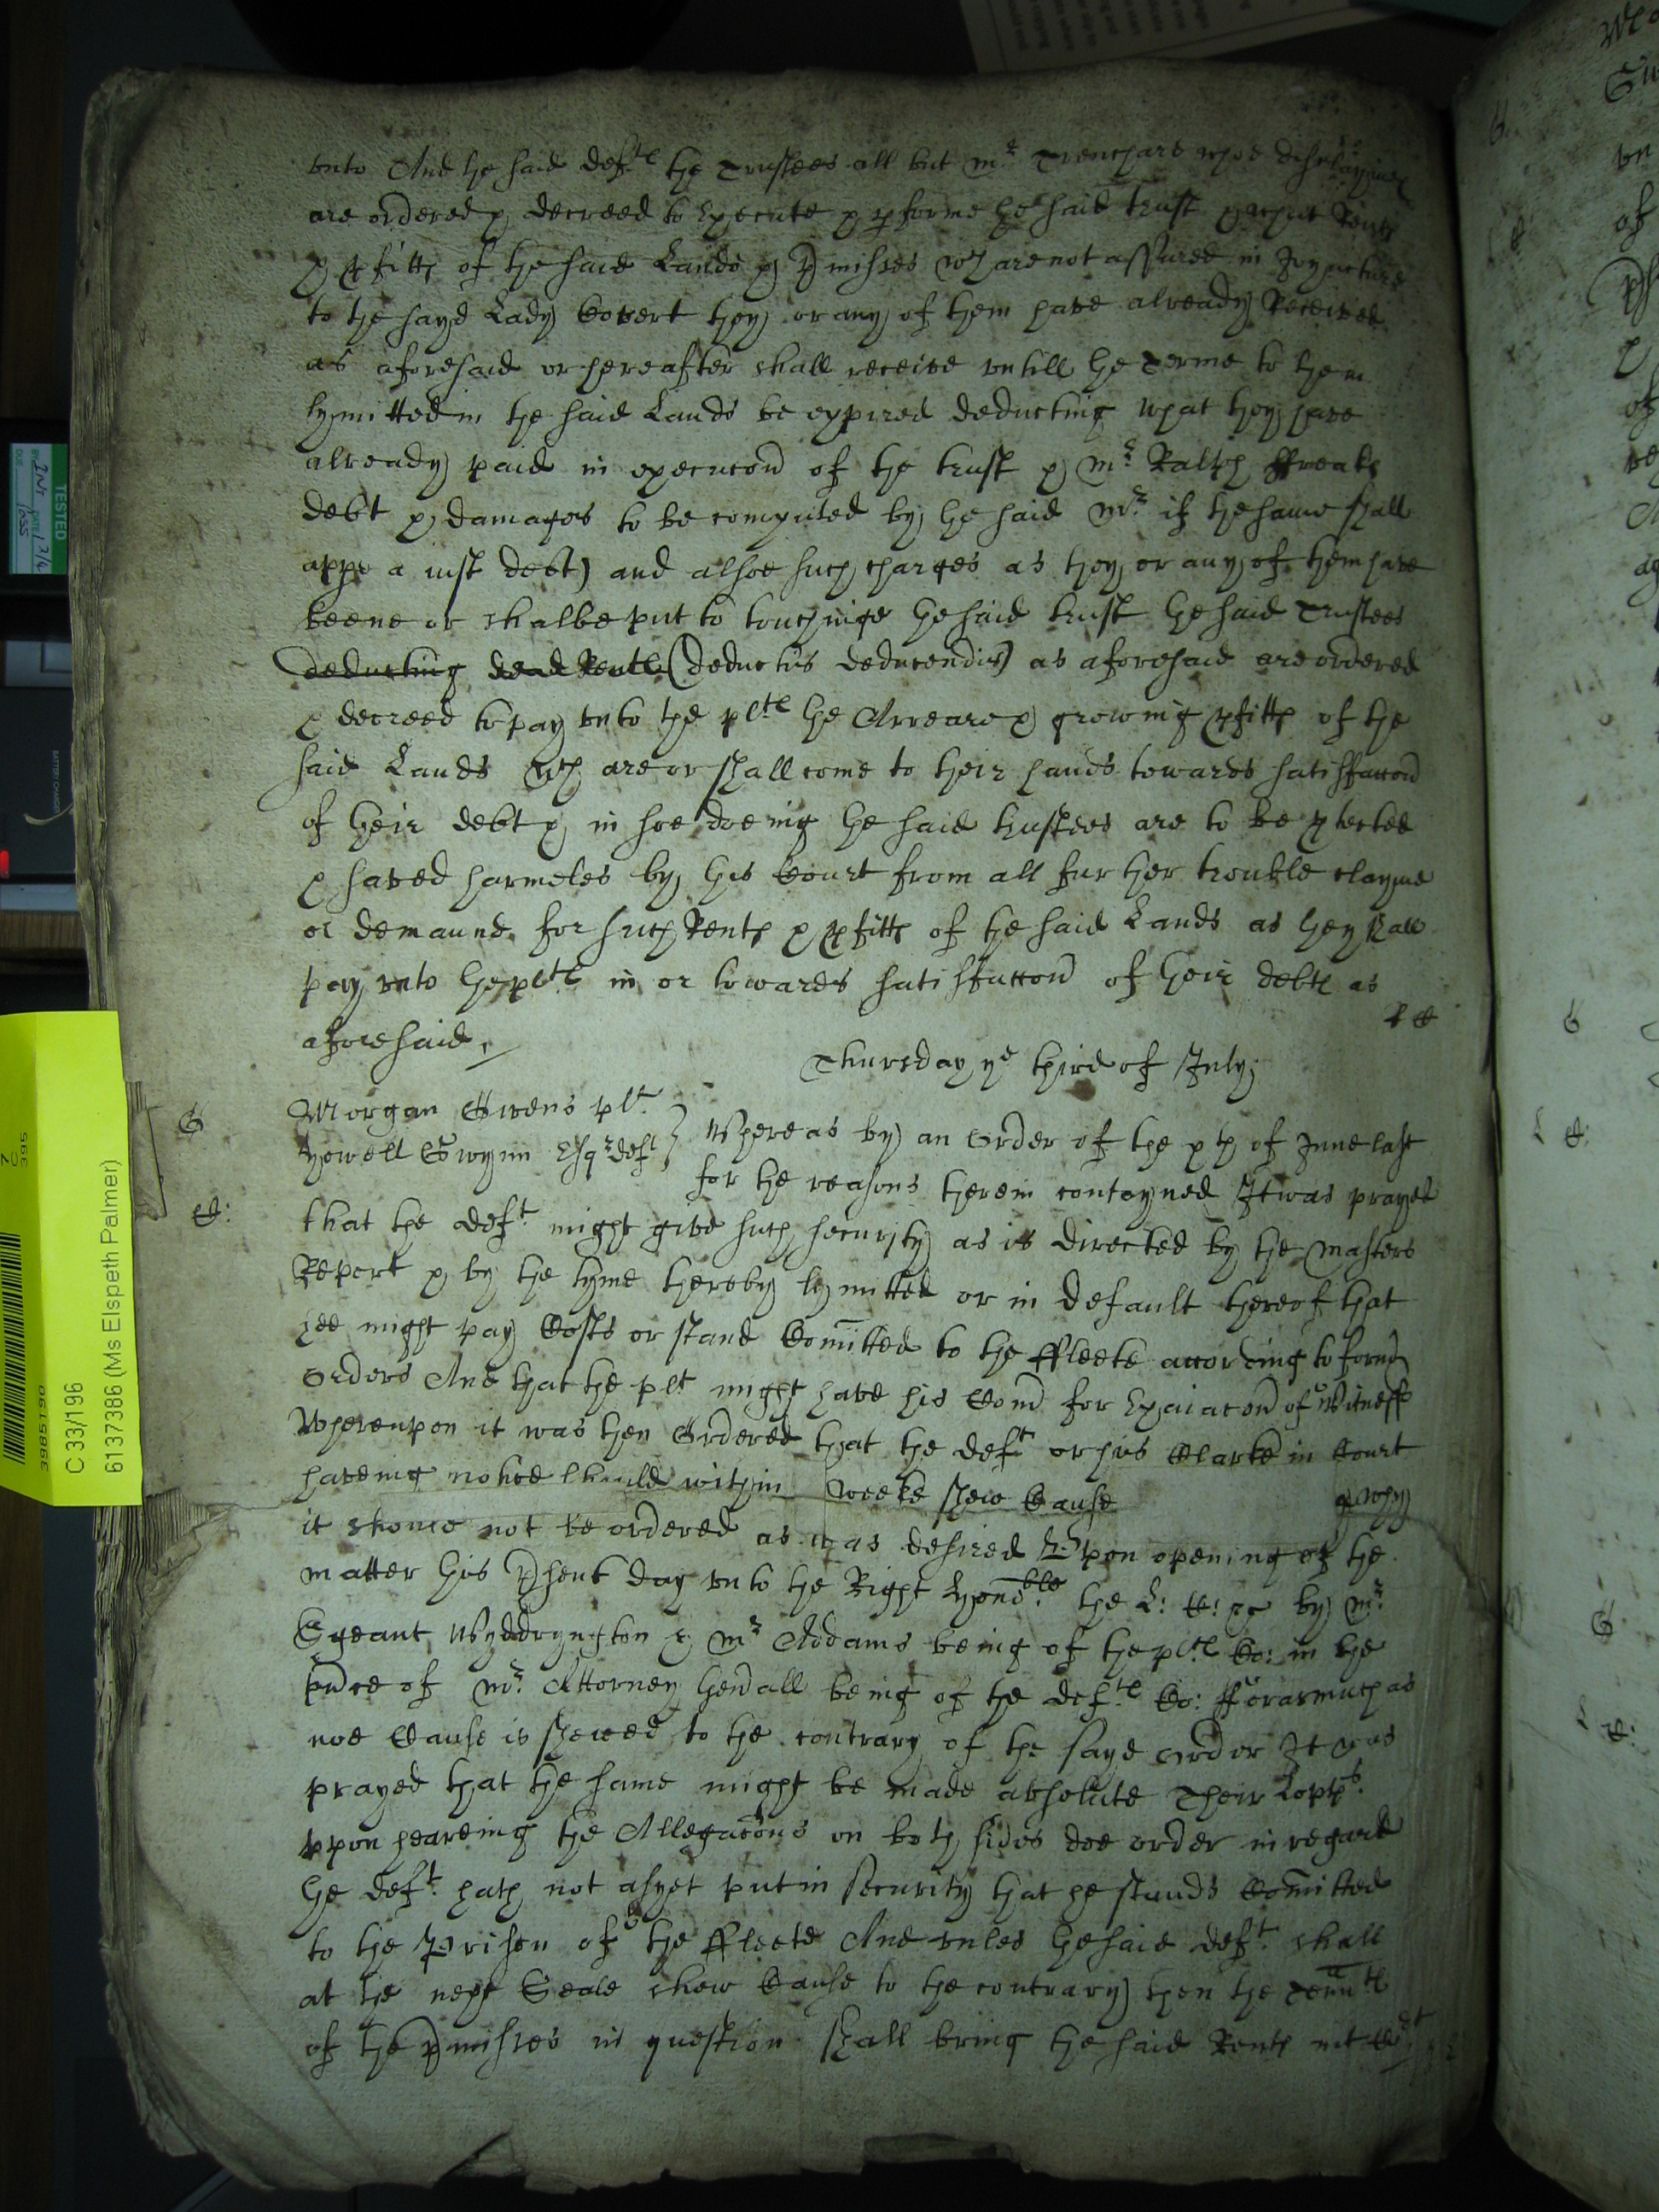 vnto And the said deftes the Trustees all but mr Trenchard whoe disclaymed
are ordered & decreed to Execute & pforme the said trust & what Rents
& pfitts of the said Lands & pmisses wch are not assured in Joyncture
to the sayd Lady Covert they or any of them have already Received
as aforesaid or hereafter shall receive vntill the terme to them
lymitted in the said Lands be expired deducting what they have
already paid in execucon of the trust & mr Ralph ffreake
debt & damages to be computed by the said Mr if the same shall
appe a iust debt) and alsoe such charges as they or any of them have
beene or shalbe put to touchinge the said trust the said Trustees
deducting dead Rents (deductis deducendis) as aforesaid are ordered
& decreed to pay vnto the pltes the Arreares & growing pfitts of the
said Lands wch are or shall come to their hands towards satisfaccon
of their debt & in soe doeing the said trustees are to be ptected
& saved harmeles by this Court from all further trouble clayme
or demaund for such Rents & pfitts of the said Lands as they shall
pay vnto the pltes in or towards satisfaccon of their debts as
aforesaid
Thursday ye third of July
G Morgan Owens plt
Howell Gwynn Esqr deft } Whereas by an Order of the xth of June last
for the reasons therein contayned It was prayed
that the deft might give such security as is directed by the Masters
Report & by the tyme thereby lymitted or in default thereof that
hee might pay Costs or stand Comitted to the ffleete according to former
Orders And that the plt might have his Com for Exaiacon of Witness
Whereupon it was then Ordered that the deft or his Clarke in Court
haveing notice should within weeke shew Cause why
it should not be ordered as was desired Vpon opening of the
matter this psent day vnto the Right Honble the L: C: by mr
Sgeant Wyddryngton & mr Addams being of the pltes Co: in the
pnce of mr Attorney Genall being of the deftes Co: fforasmuch as
noe Cause is shewed to the contrary of the sayd order It was
prayed that the same might be made absolute Their Lopps
vpon heareing the Allegacons on both sides doe order in regard
the deft hath not as yet put in security that he stands Comitted
to the Prison of the ffleete And vnles the said deft shall
at the next Seale shew Cause to the contrary then the Tennts
of the pmisses in question shall bring the said Rents into
TESTED
DUE
DATE
3985190
7
C
395
C 33/196
6137386 (Ms Elspeth Palmer)